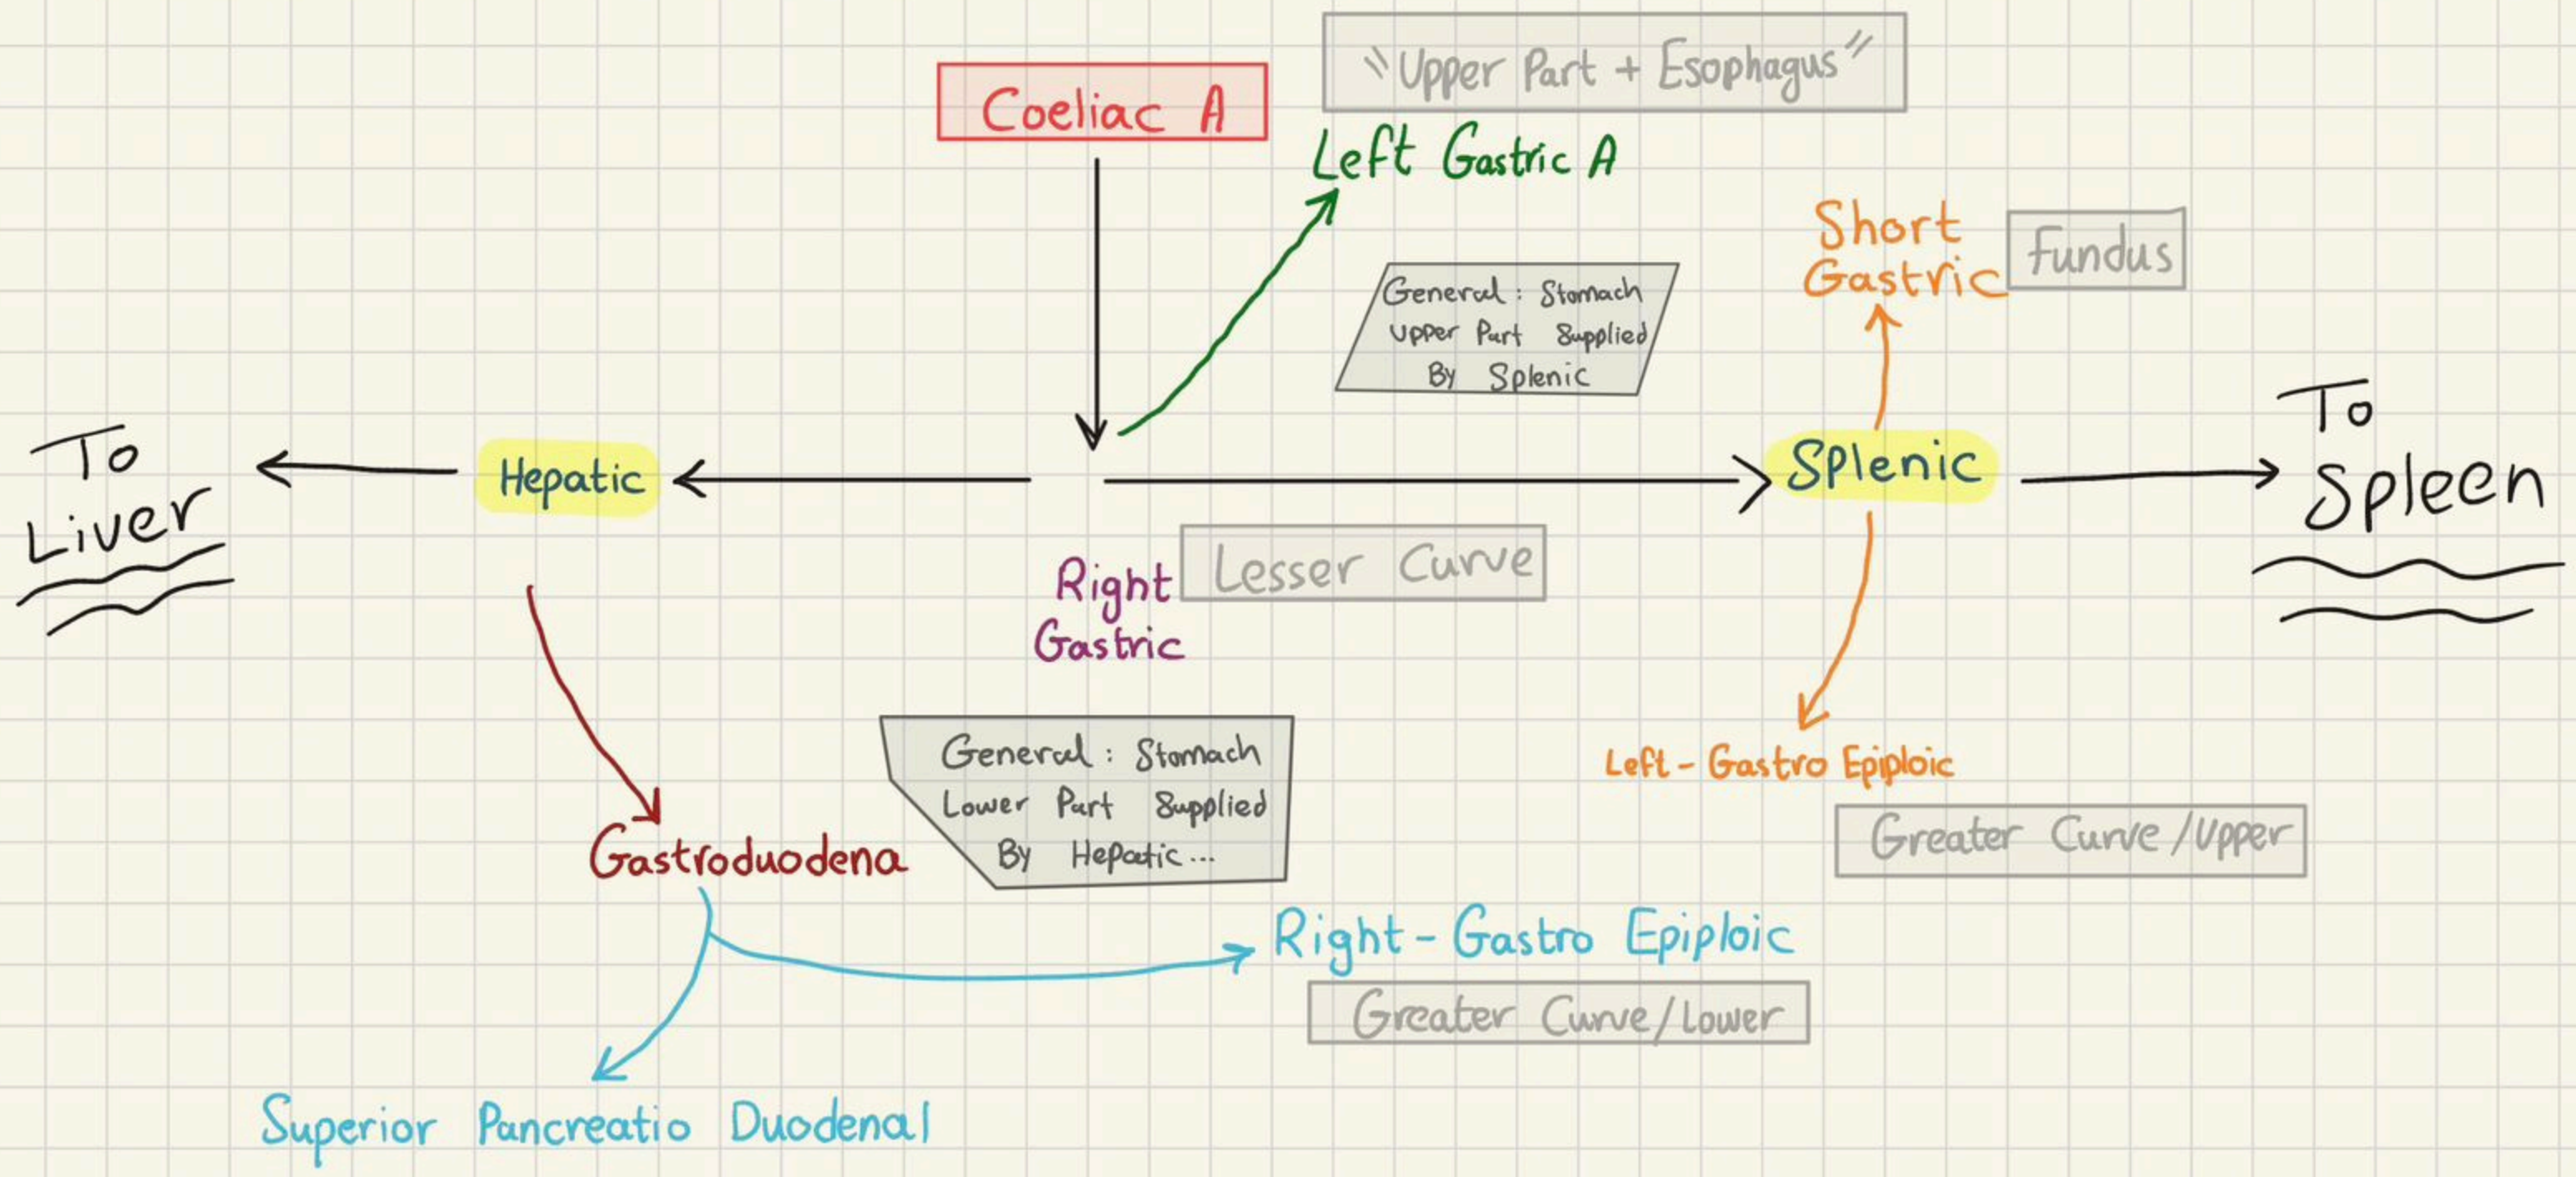 "Upper Part + Esophagus"
Coeliac A
Left Gastric A
Short
Gastric
Fundus
General : Stomach
Upper Part Supplied
By Splenic
To
Liver
Hepatic
Splenic
To
Spleen
Right
Gastric
Lesser Curve
General : Stomach
Lower Part Supplied
By Hepatic...
Left - Gastro Epiploic
Greater Curve / Upper
Gastroduodena
Right - Gastro Epiploic
Greater Curve / Lower
Superior Pancreatio Duodenal